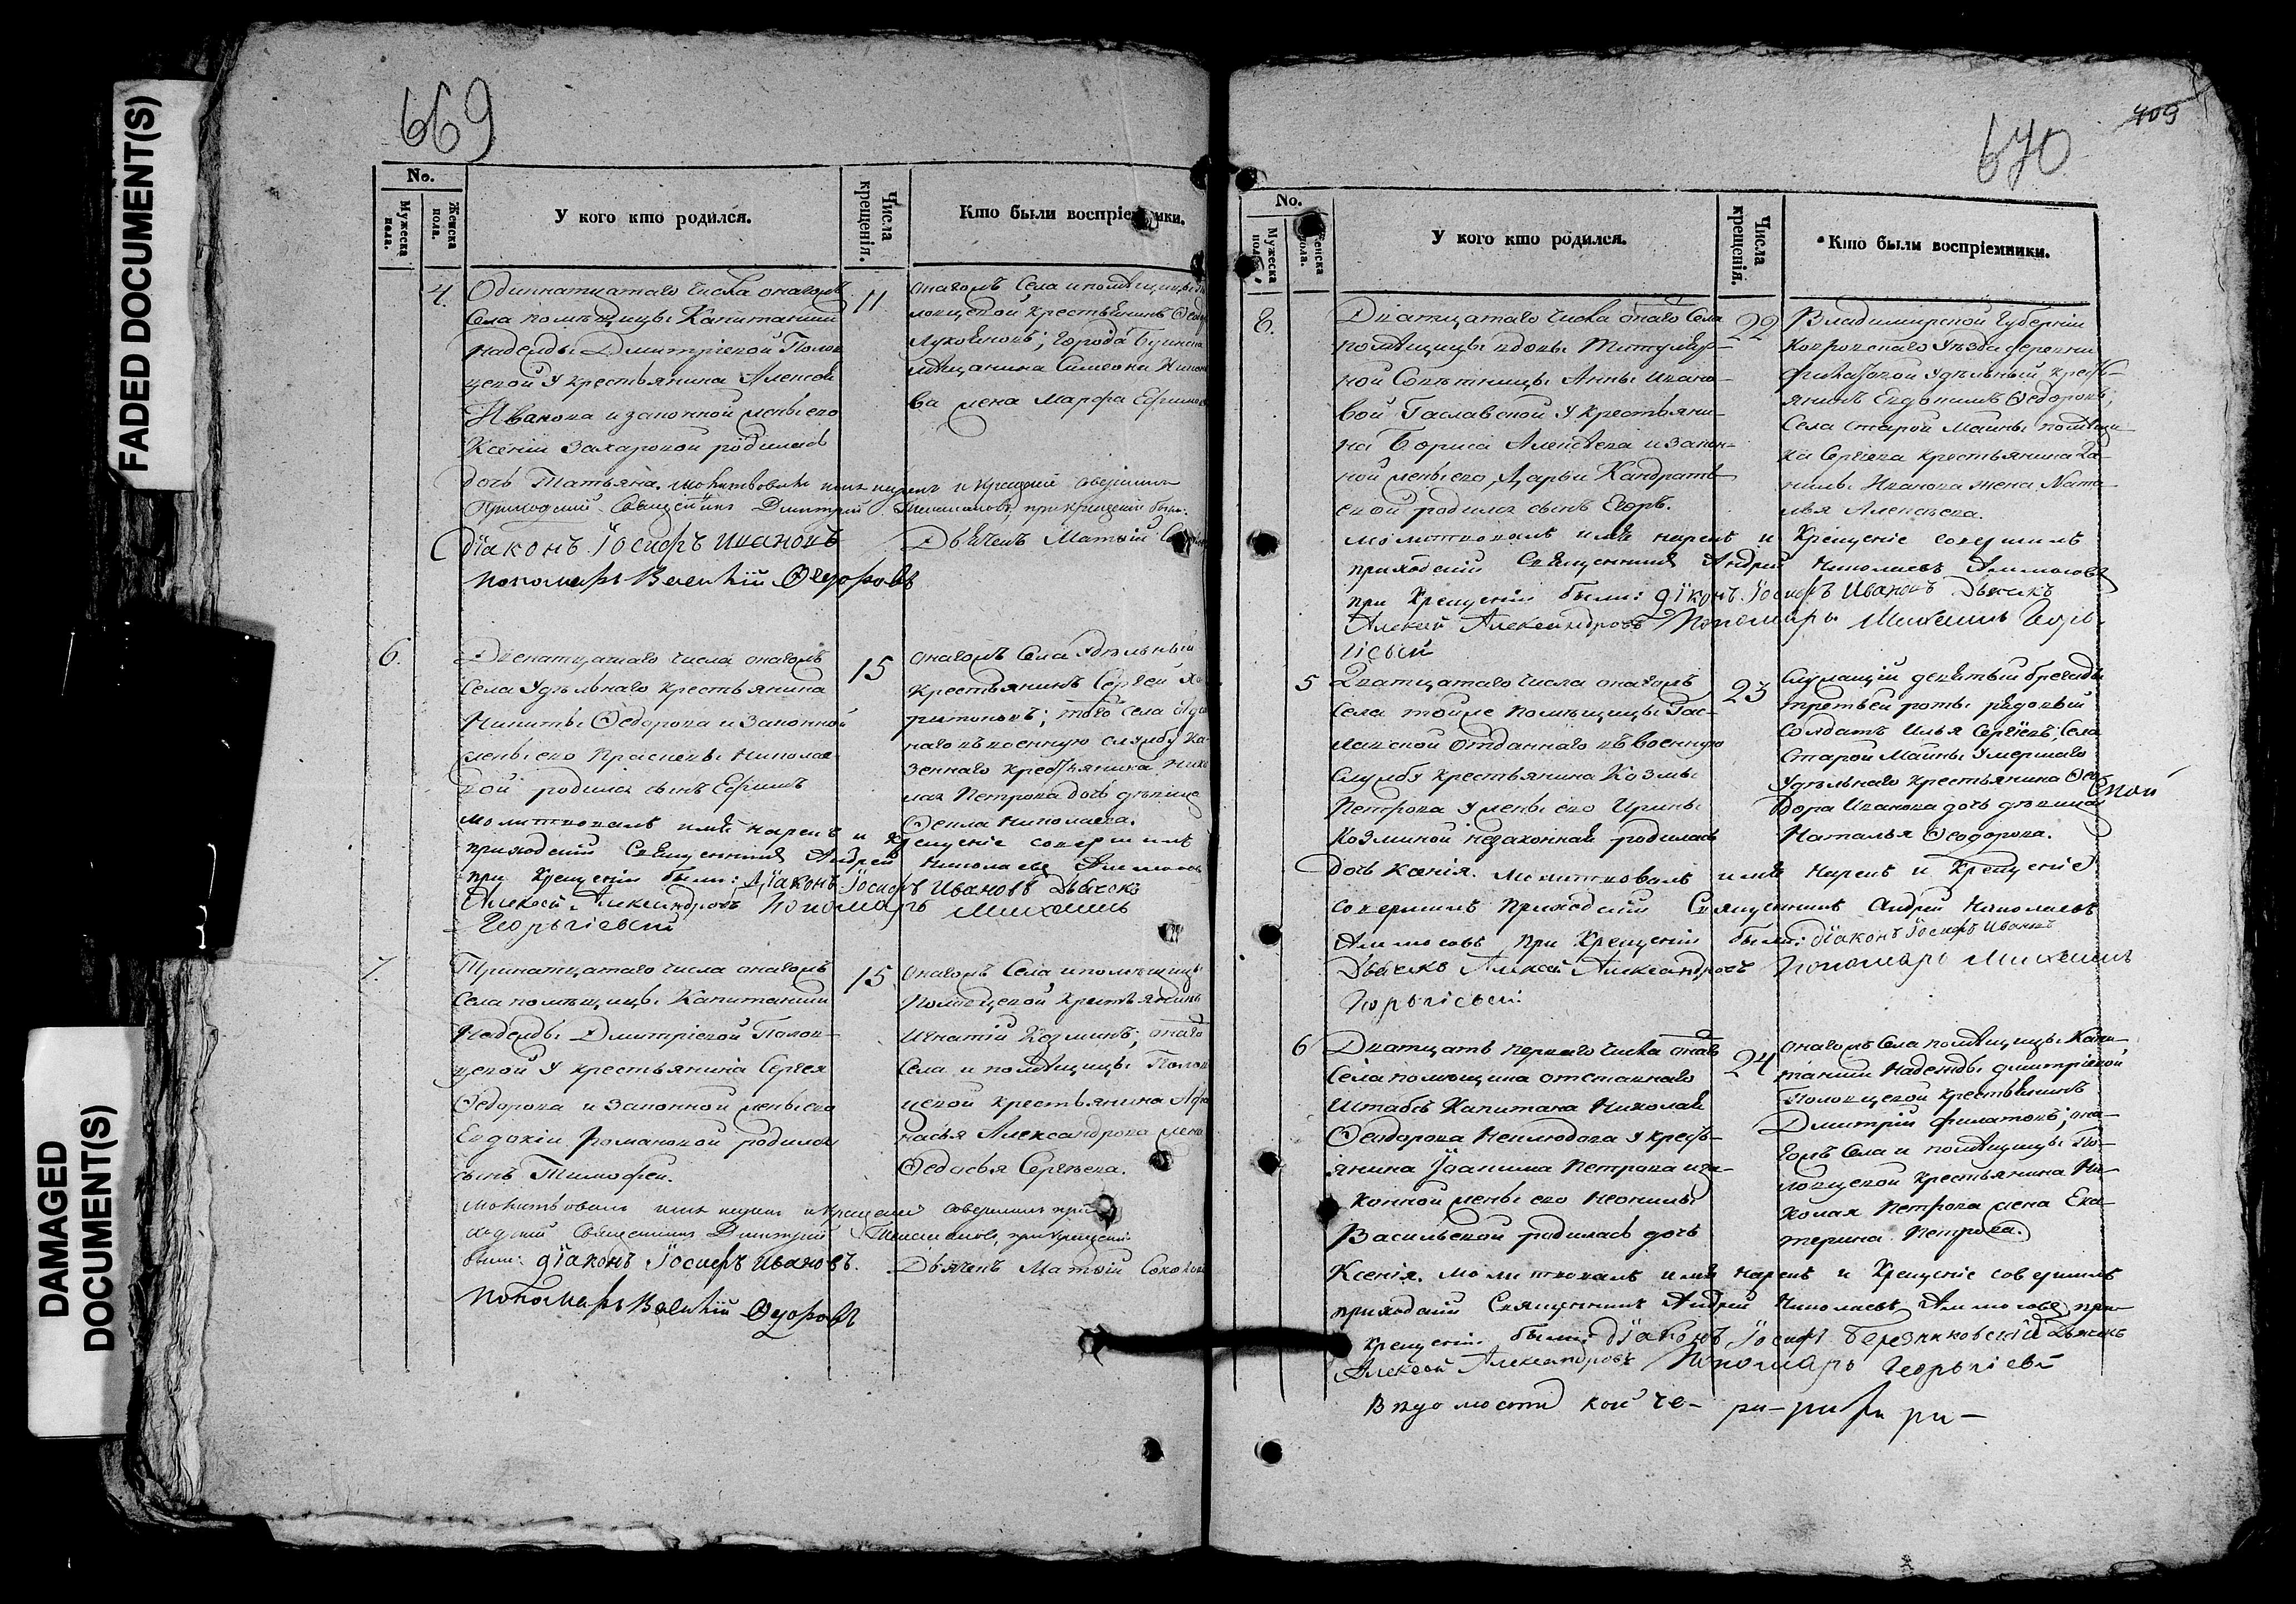 FADED DOCUMENT(S)
DAMAGED
DOCUMENT(S)
669
No.
Мужеска пола.
Женска пола.
У кого кто родился.
Числа крещенія.
Кто были воспріемники.
4.
Одиннатцатаго числа онагожъ
Села помѣщицы Капитанши
Надежды Дмитріевой Полов
цовой у крестьянина Алексѣя
Иванова и законной жены его
Ксеніи Захаровой родилась
дочь Татьяна. Молитвовалъ имя нарекъ и крещеніе совершилъ
Приходскій Священникъ Димитрій при крещеніи были:
Діаконъ Іосифъ Ивановъ
Дьячекъ Матвій
пономарь Василій Федоровъ
11
онагожъ Села и помѣщицы По
ловцовой крестьянинъ
города Буинска
мѣщанина Симеона
ва жена Марфа
6.
Двенатцатаго числа онагожъ
Села Удѣльнаго крестьянина
Никиты Ѳедорова и законной
жены его Прасковьи Николае
вой родился сынъ Ефимъ
молитвовалъ имя нарекъ и крещеніе совершилъ
приходскій Священникъ Андрей Николаевъ Аммосовъ
при Крещеніи были: Діаконъ Іосифъ Ивановъ Дьячекъ
Алексѣй Александровъ Пономарь Михаилъ
Георьгіевскій
15
онагожъ Села Удѣльный
крестьянинъ Сергѣй Ха
ритоновъ; того Села отдан
наго въ военную службу ка
зеннаго крестьянина Нико
лая Петрова дочь дѣвица
Ѳекла Николаева.
7.
Тринатцатаго числа онагожъ
Села помѣщицы Капитанши
Надежды Дмитріевой Полов-
цовой у крестьянина Сергея
Ѳедорова и законной жены его
Евдокіи Романовой родился
сынъ Тимофей.
Молитвовалъ имя нарекъ и крещеніе совершилъ при
ходскій Священникъ Димитрій при крещеніи
были: діаконъ Іосифъ Ивановъ. Дьячекъ Матвій
пономарь Василій Федоровъ
15
онагожъ Села и помѣщицы
Половцовой крестьянинъ
Игнатій Козминъ; онаго
Села и помѣщицы Полов
цовой крестьянина Афа
насья Александрова жена
Ѳедосья Сергѣева.
409
670
No.
Мужеска пола.
Женска пола.
У кого кто родился.
Числа крещенія.
Кто были воспріемники.
8.
Дватцатаго числа онаго Села
помѣщицы вдовы Титуляр-
ной Совѣтницы Анны Ивано-
вой Гославской у крестьяни-
на Бориса Алексѣева и закон-
ной жены его Дарьи Кандрать-
евой родился сынъ Егоръ.
молитвовалъ имя нарекъ и Крещеніе совершилъ
приходскій Священникъ Андрей Николаевъ Аммосовъ
при Крещеніи были: діконъ Іосифъ Ивановъ Дьячекъ
Алексѣй Александровъ Пономарь Михаилъ Геор-
гіевый
22
Владимирской Губерніи
Ковровскаго Уѣзда деревни
удѣльный кресть-
янинъ Евдокимъ Ѳедоровъ;
Села Старой Майны помѣщи-
ка Сергѣева крестьянина Да-
нилы Иванова жена Ната-
лья Алексѣева.
5
Дватцатаго числа онагожъ
Села тойже помѣщицы Гос-
лавской отданнаго въ военную
службу крестьянина Козмы
Петрова у жены его Ирины
Козминой незаконная родилась
дочь Ксенія. Молитвовалъ имя Нарекъ и Крещеніе
совершилъ приходскій Священникъ Андрей Николаевъ
Аммосовъ при Крещеніи были: діаконъ Іосифъ Ивановъ
Дьячекъ Алексѣй Александровъ Пономарь Михаилъ
Георьгіевый
23
Служащій девятый бригады
третьей роты рядовый
Солдатъ Илья Сергѣевъ; Села
Старой Майны умершаго
удѣльнаго крестьянина Ѳео
дора Иванова дочь дѣвица
Наталья Ѳеодорова.
6
Дватцать перваго числа онаго
Села помѣщика отставнаго
Штабсъ Капитана Николая
Ѳеодорова Неплюдова у кресть-
янина Іоакима Петрова и за-
конной жены его Неонилы
Васильевой родилась дочь
Ксенія. молитвовалъ имя нарекъ и Крещеніе совершилъ
приходскій Священникъ Андрей Николаевъ Аммосовъ при
крещеніи были: діаконъ Іосифъ Березниковскій Дьячекъ
Алексѣй Александровъ Пономарь Георьгіевъ
24
онагожъ Села помѣщицы Капи-
танши Надежды Дмитріевой
Половцовой крестьянинъ
Дмитрій Филатовъ; она-
гожъ Села и помѣщицы По-
ловцовой крестьянина Ни-
колая Петрова жена Ека-
терина Петрова.